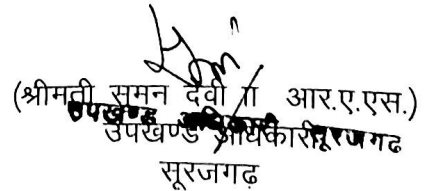 (श्रीमती सुमन देवी आर.ए.एस.)
उपखण्ड अधिकारी सूरजगढ
उपखण्ड अधिकारी
सूरजगढ़